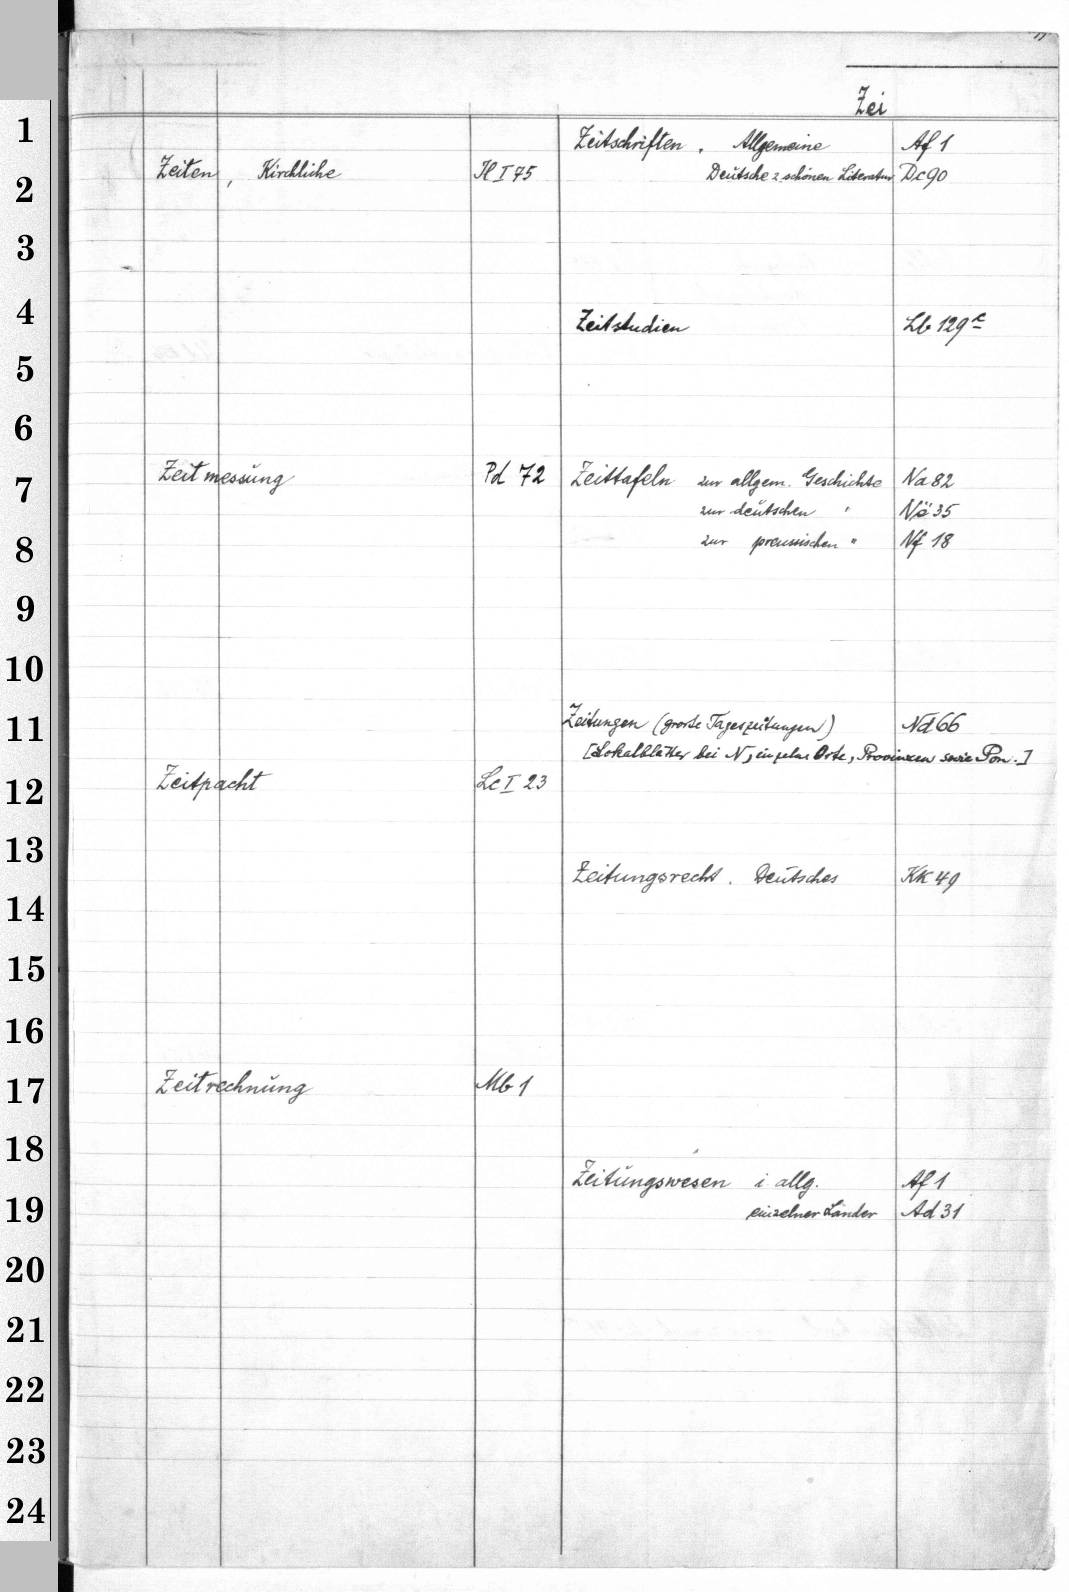 Zei
1
2
3
4
5
6
7
8
9
10
11
12
13
14
15
16
17
18
19
20
21
22
23
24
Zeiten, Kirchliche Il I 75
Zeitmessung Pd 72
Zeitpacht Lc I 23
Zeitrechnung Mb 1
Zeitschriften, Allgemeine Af 1
Deutsche z. schönen Literatur Dc 90
Zeitstudien Lb 129 c
Zeittafeln zur allgem. Geschichte Na 82
zur deutschen " Nö 35
zur preussischen " Nf 18
Zeitungen (große Tageszeitungen) Nd 66
[Lokalblätter bei N, einzelne Orte, Provinzen sowie Pom.]
Zeitungsrecht. Deutsches Kk 49
Zeitungswesen i allg. Af 1
einzelner Länder Ad 31